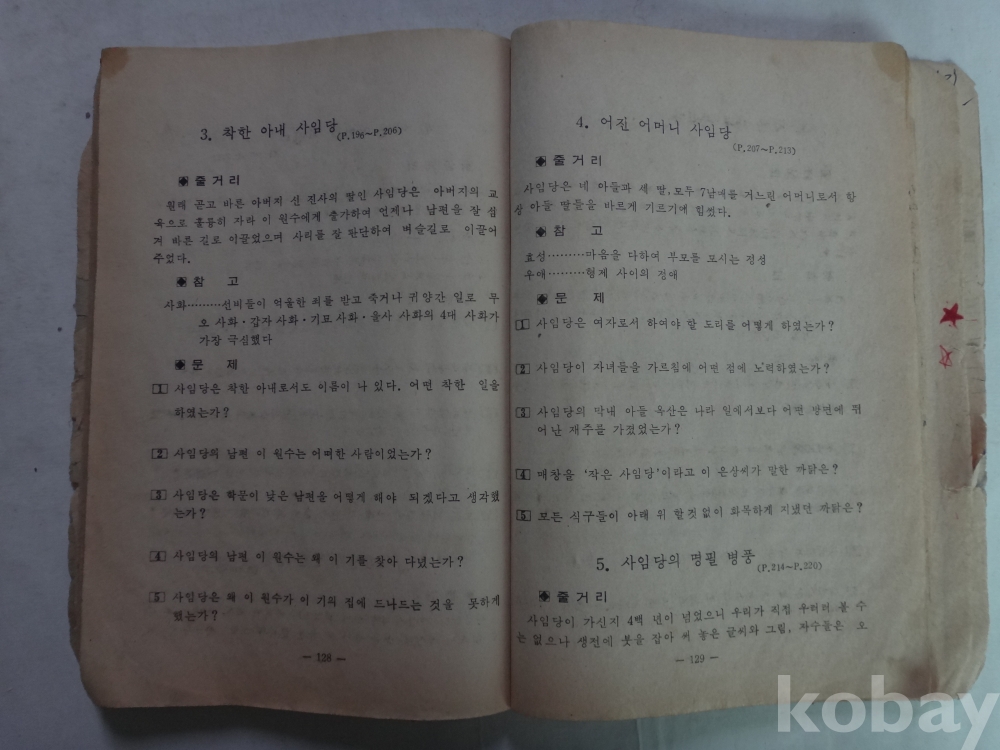 3. 착한 아내 사임당(P.196~P.206)
◈ 줄거리
원래 곧고 바른 아버지 신 진사의 딸인 사임당은 아버지의 교
육으로 훌륭히 자라 이 원수에게 출가하여 언제나 남편을 잘 섬
겨 바른 길로 이끌었으며 사리를 잘 판단하여 벼슬길로 이끌어
주었다.
◈ 참 고
사화………선비들이 억울한 죄를 받고 죽거나 귀양간 일로 무
오 사화·갑자 사화·기묘 사화·을사 사화의 4대 사화가
가장 극심했다
◈ 문 제
1 사임당은 착한 아내로서도 이름이 나 있다. 어떤 착한 일을
하였는가?
2 사임당의 남편 이 원수는 어떠한 사람이었는가?
3 사임당은 학문이 낮은 남편을 어떻게 해야 되겠다고 생각했
는가?
4 사임당의 남편 이 원수는 왜 이 기를 찾아 다녔는가?
5 사임당은 왜 이 원수가 이 기의 집에 드나드는 것을 못하게
했는가?
— 128 —
4. 어진 어머니 사임당
(P.207~P.213)
◈ 줄거리
사임당은 네 아들과 세 딸, 모두 7남매를 거느린 어머니로서 항
상 아들 딸들을 바르게 기르기에 힘썼다.
◈ 참 고
효성………마음을 다하여 부모를 모시는 정성
우애………형제 사이의 정애
◈ 문 제
1 사임당은 여자로서 하여야 할 도리를 어떻게 하였는가?
2 사임당이 자녀들을 가르침에 어떤 점에 노력하였는가?
3 사임당의 막내 아들 옥산은 나라 일에서보다 어떤 방면에 뛰
어난 재주를 가졌었는가?
4 매창을 '작은 사임당'이라고 이 은상씨가 말한 까닭은?
5 모든 식구들이 아래 위 할것 없이 화목하게 지냈던 까닭은?
5. 사임당의 명필 병풍(P.214~P.220)
◈ 줄거리
사임당이 가신지 4백 년이 넘었으니 우리가 직접 우러러 볼 수
는 없으나 생전에 붓을 잡아 써 놓은 글씨와 그림, 자수들은 오
— 129 —
kobay